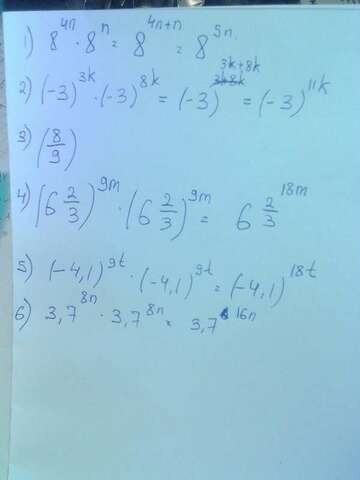 1) 8^{4n} · 8^{n} = 8^{4n+n} = 8^{5n}
2) (-3)^{3k} · (-3)^{8k} = (-3)^{3k+8k} = (-3)^{11k}
3) (8/9)
4) (6 2/3)^{9m} · (6 2/3)^{9m} = 6 2/3^{18m}
5) (-4,1)^{9t} · (-4,1)^{9t} = (-4,1)^{18t}
6) 3,7^{8n} · 3,7^{8n} = 3,7^{16n}